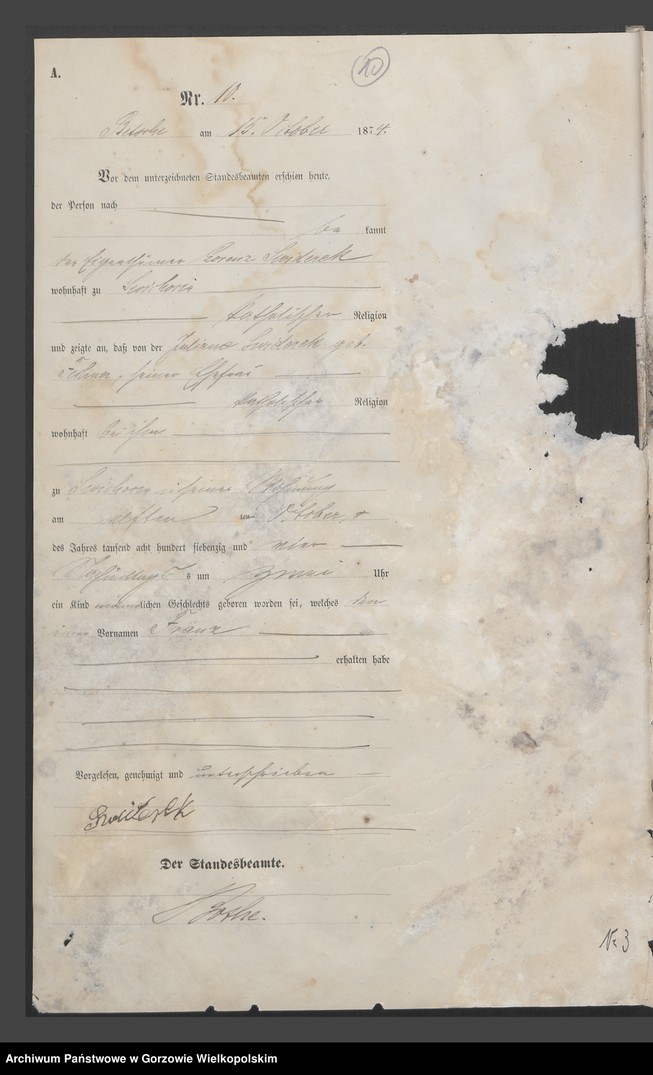 A.
10
Nr. 10.
Betsche am 15. October 1874.
Vor dem unterzeichneten Standesbeamten erschien heute,
der Person nach
be kannt
der Eigenthümer Lorenz Swiderek
wohnhaft zu
katholischer Religion
und zeigte an, daß von der Juliana Swiderek geb.
seiner Ehefrau
katholischer Religion
wohnhaft bei ihm
zu in seiner Wohnung
am elften October
des Jahres tausend acht hundert siebenzig und vier
Nachmittags um zwei Uhr
ein Kind männlichen Geschlechts geboren worden sei, welches den
Vornamen Franz
erhalten habe
Vorgelesen, genehmigt und unterschrieben
Swiderek
Der Standesbeamte.
№ 3
Archiwum Państwowe w Gorzowie Wielkopolskim